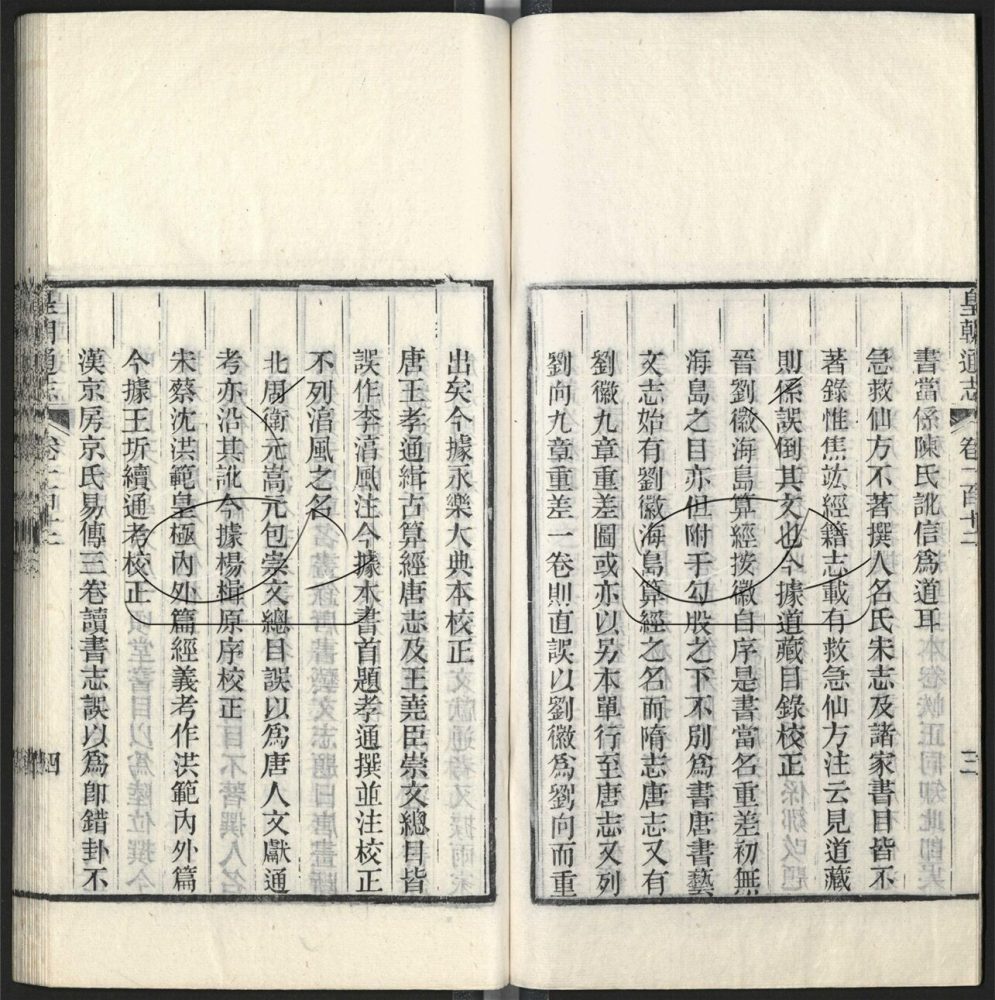 皇朝通志
卷一百十二
三
書當係陳氏訛信爲道耳
急救仙方不著撰人名氏宋志及諸家書目皆不
著錄惟焦竑經籍志載有救急仙方注云見道藏
則係誤倒其文也今據道藏目錄校正
晉劉徽海島算經按徽自序是書當名重差初無
海島之目亦但附于勾股之下不別爲書唐書藝
文志始有劉徽海島算經之名而隋志唐志又有
劉徽九章重差圖或亦以另本單行至唐志又列
劉向九章重差一卷則直誤以劉徽爲劉向而重
出矣今據永樂大典本校正
唐王孝通緝古算經唐志及王堯臣崇文總目皆
誤作李湻風注今據本書首題孝通撰並注校正
不列湻風之名
北周衛元嵩元包崇文總目誤以爲唐人文獻通
考亦沿其訛今據楊楫原序校正
宋蔡沈洪範皇極內外篇經義考作洪範內外篇
今據王圻續通考校正
漢京房京氏易傳三卷讀書志誤以爲卽錯卦不
通志
四